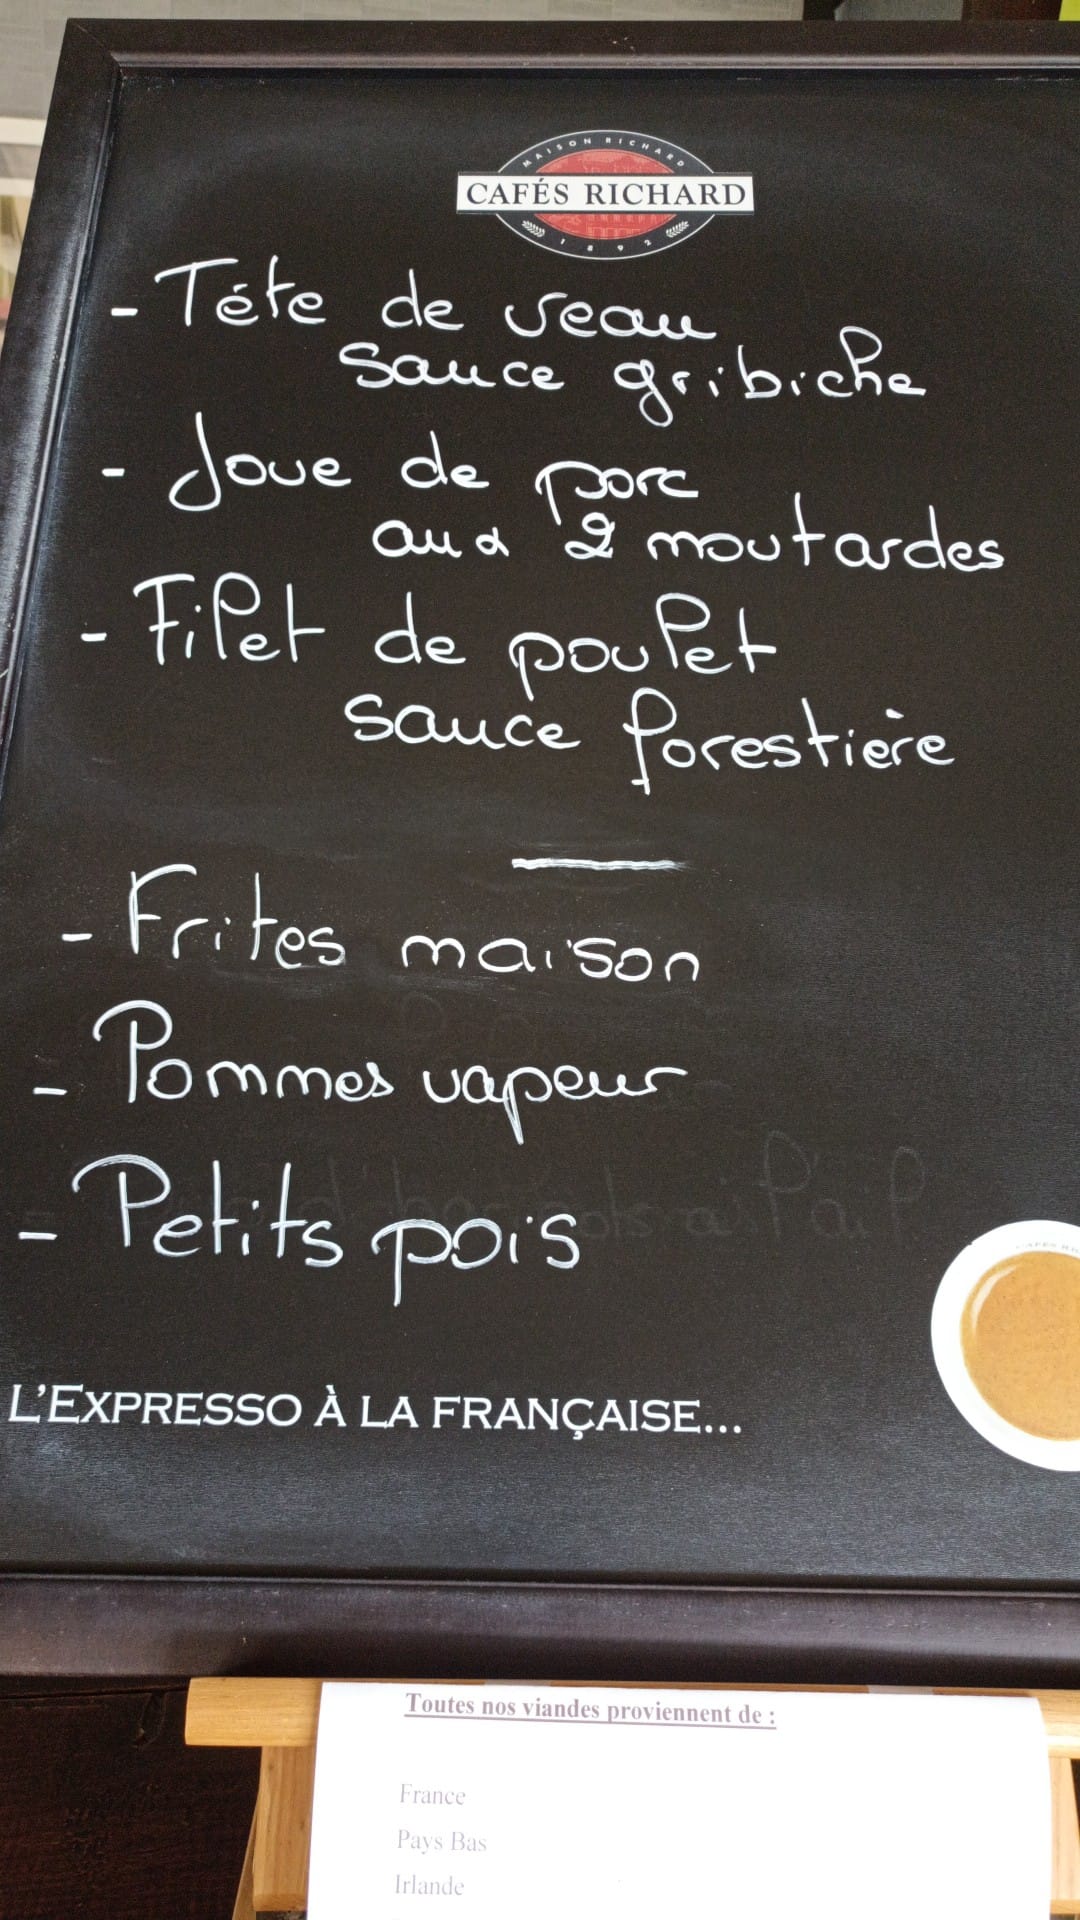 MAISON RICHARD
CAFÉS RICHARD
1892
- Téte de veau
sauce gribiche
- Joue de porc
aux 2 moutardes
- Filet de poulet
sauce forestière
- Frites maison
- Pommes vapeur
- Petits pois
L'EXPRESSO À LA FRANÇAISE...
Toutes nos viandes proviennent de :
France
Pays Bas
Irlande